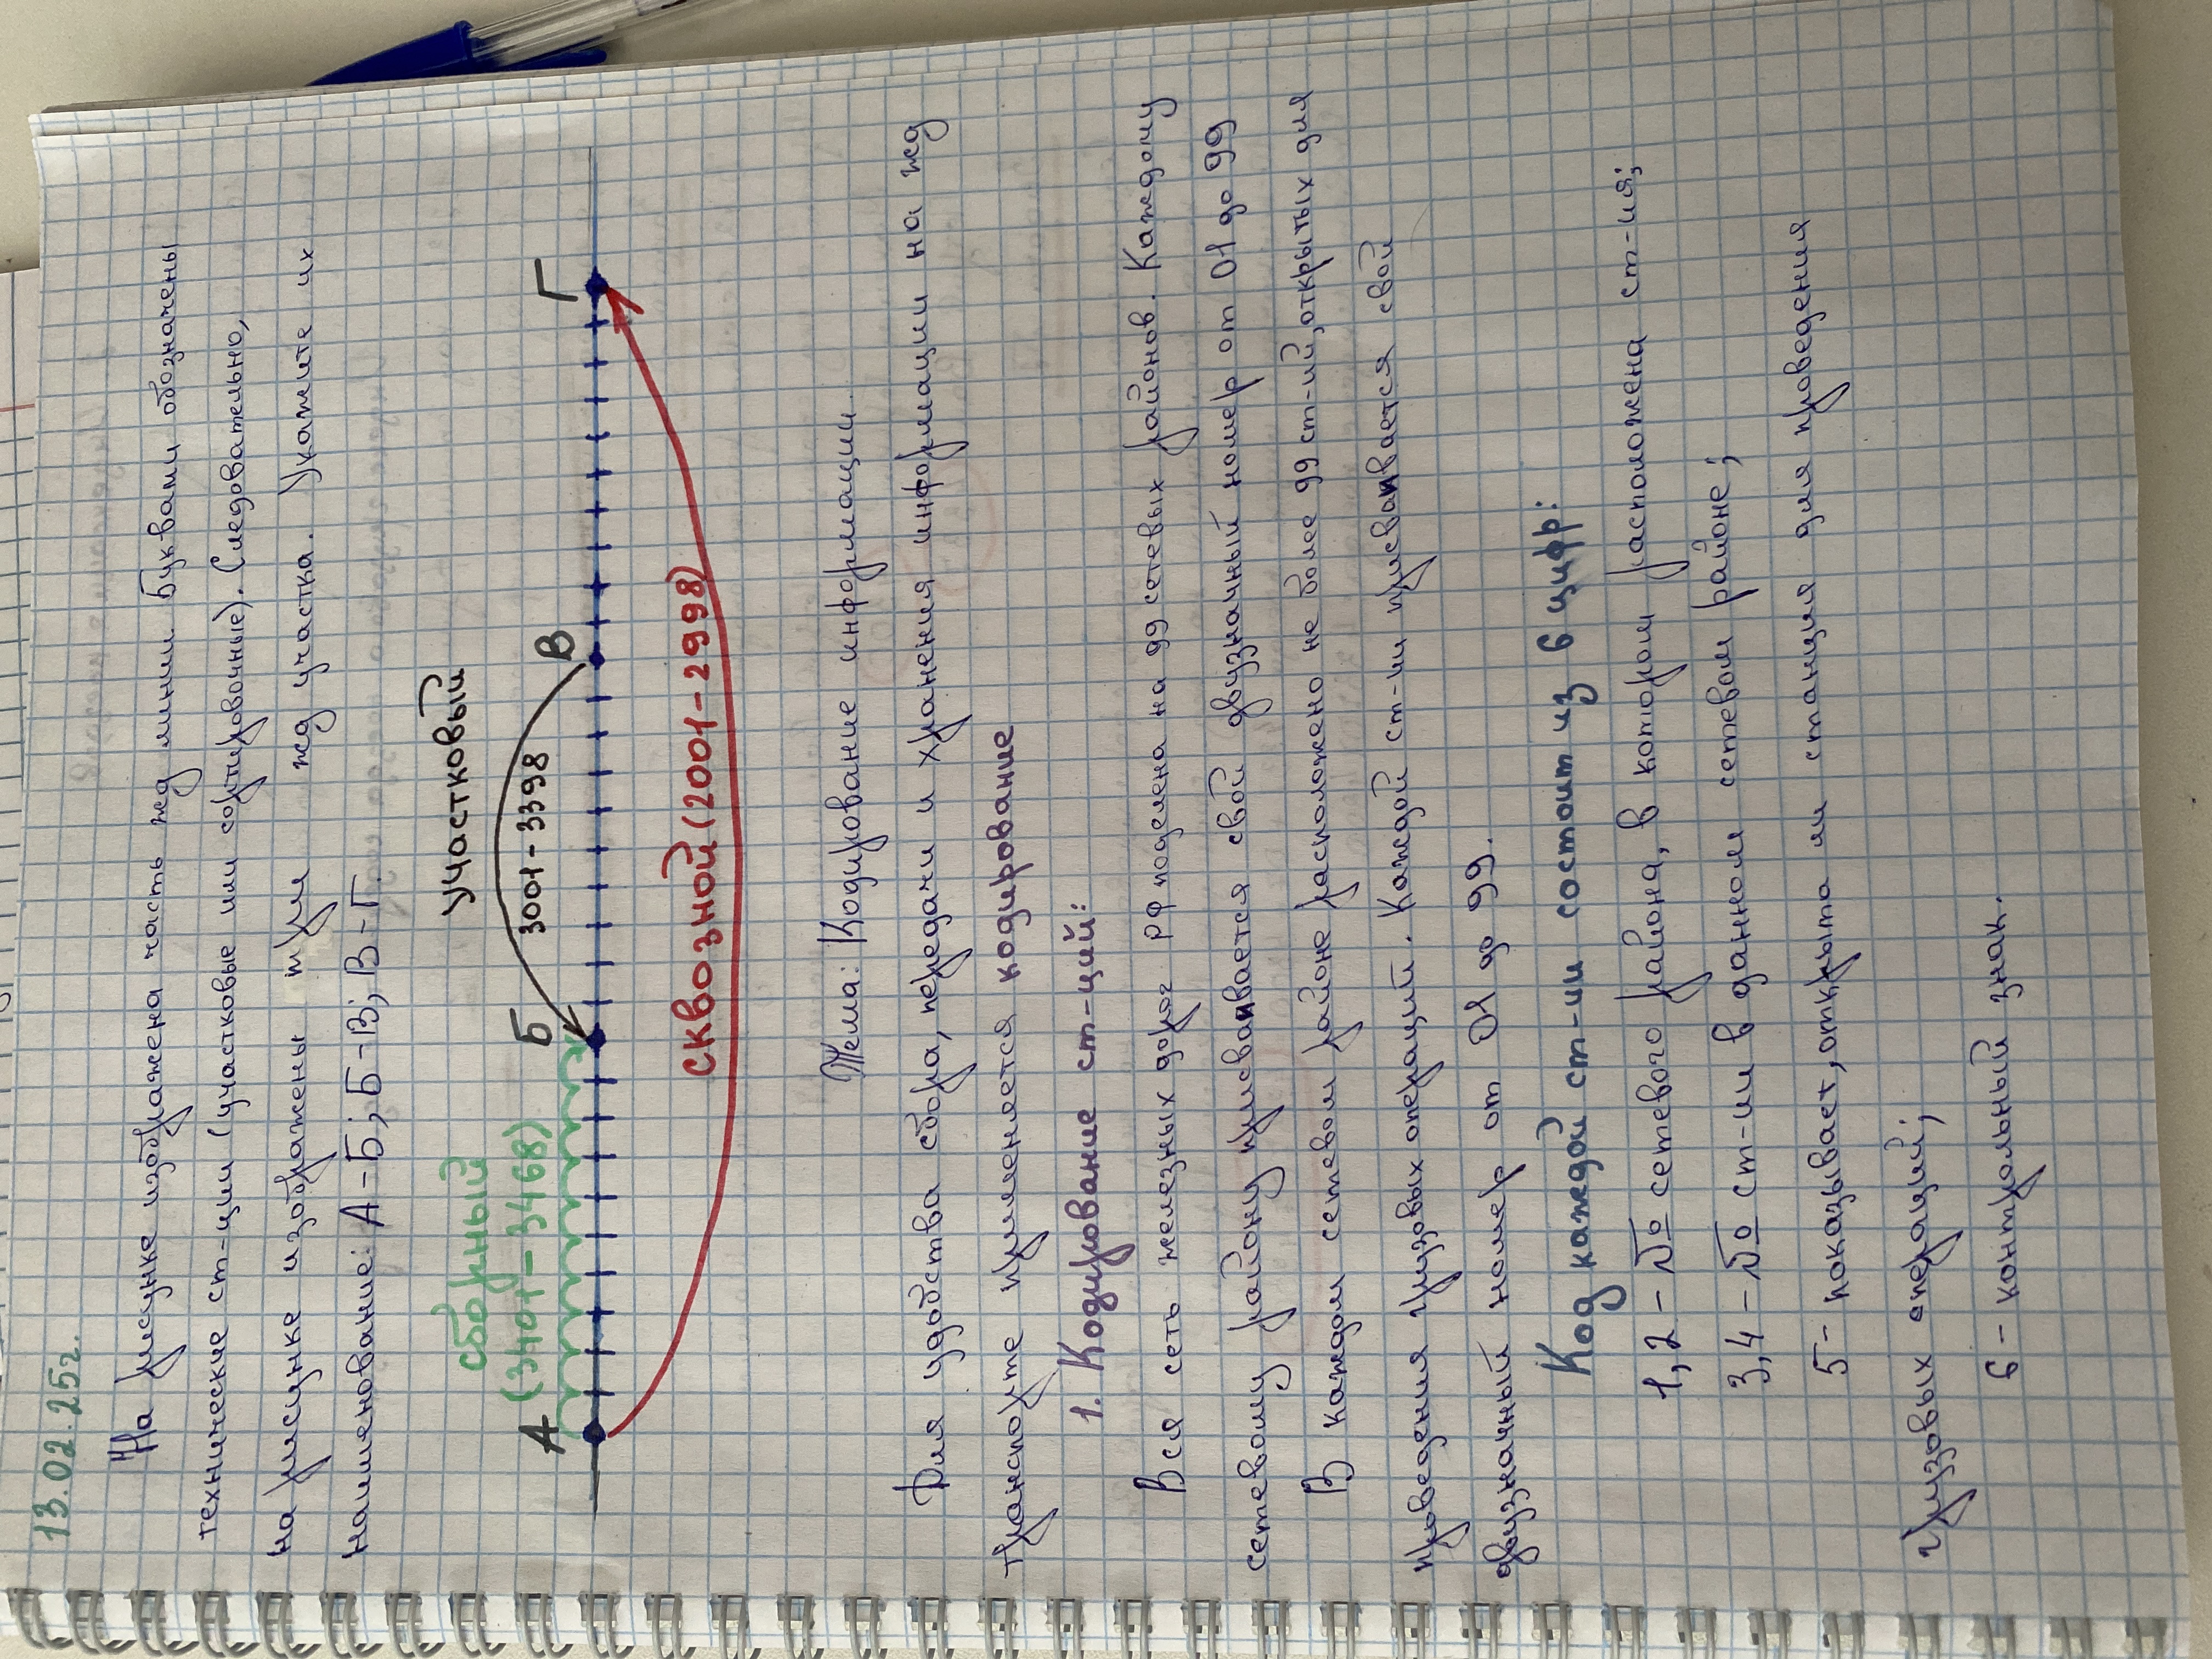 13.02.25г.
"На рисунке изображена часть жд линии. Буквами обозначены
технические ст-ции (участковые или сортировочные). Следовательно,
на рисунке изображены три жд участка. Укажите их
наименование: А-Б; Б-В; В-Г.
сборный
(3401-3468)
участковый
3001-3398
А
Б
В
Г
сквозной (2001-2998)
Тема: Кодирование информации.
Для удобства сбора, передачи и хранения информации на жд
транспорте применяется кодирование
1. Кодирование ст-ций:
Вся сеть железных дорог РФ поделена на 99 сетевых районов. Каждому
сетевому району присваивается свой двузначный номер от 01 до 99
В каждом сетевом районе расположено не более 99 ст-ий, открытых для
проведения грузовых операций. Каждой ст-ии присваивается свой
двузначный номер от 01 до 99.
Код каждой ст-ии состоит из 6 цифр:
1,2 - № сетевого района, в котором расположена ст-ия;
3,4 - № ст-ии в данном сетевом районе;
5 - показывает, открыта ли станция для проведения
грузовых операций;
6 - контрольный знак.